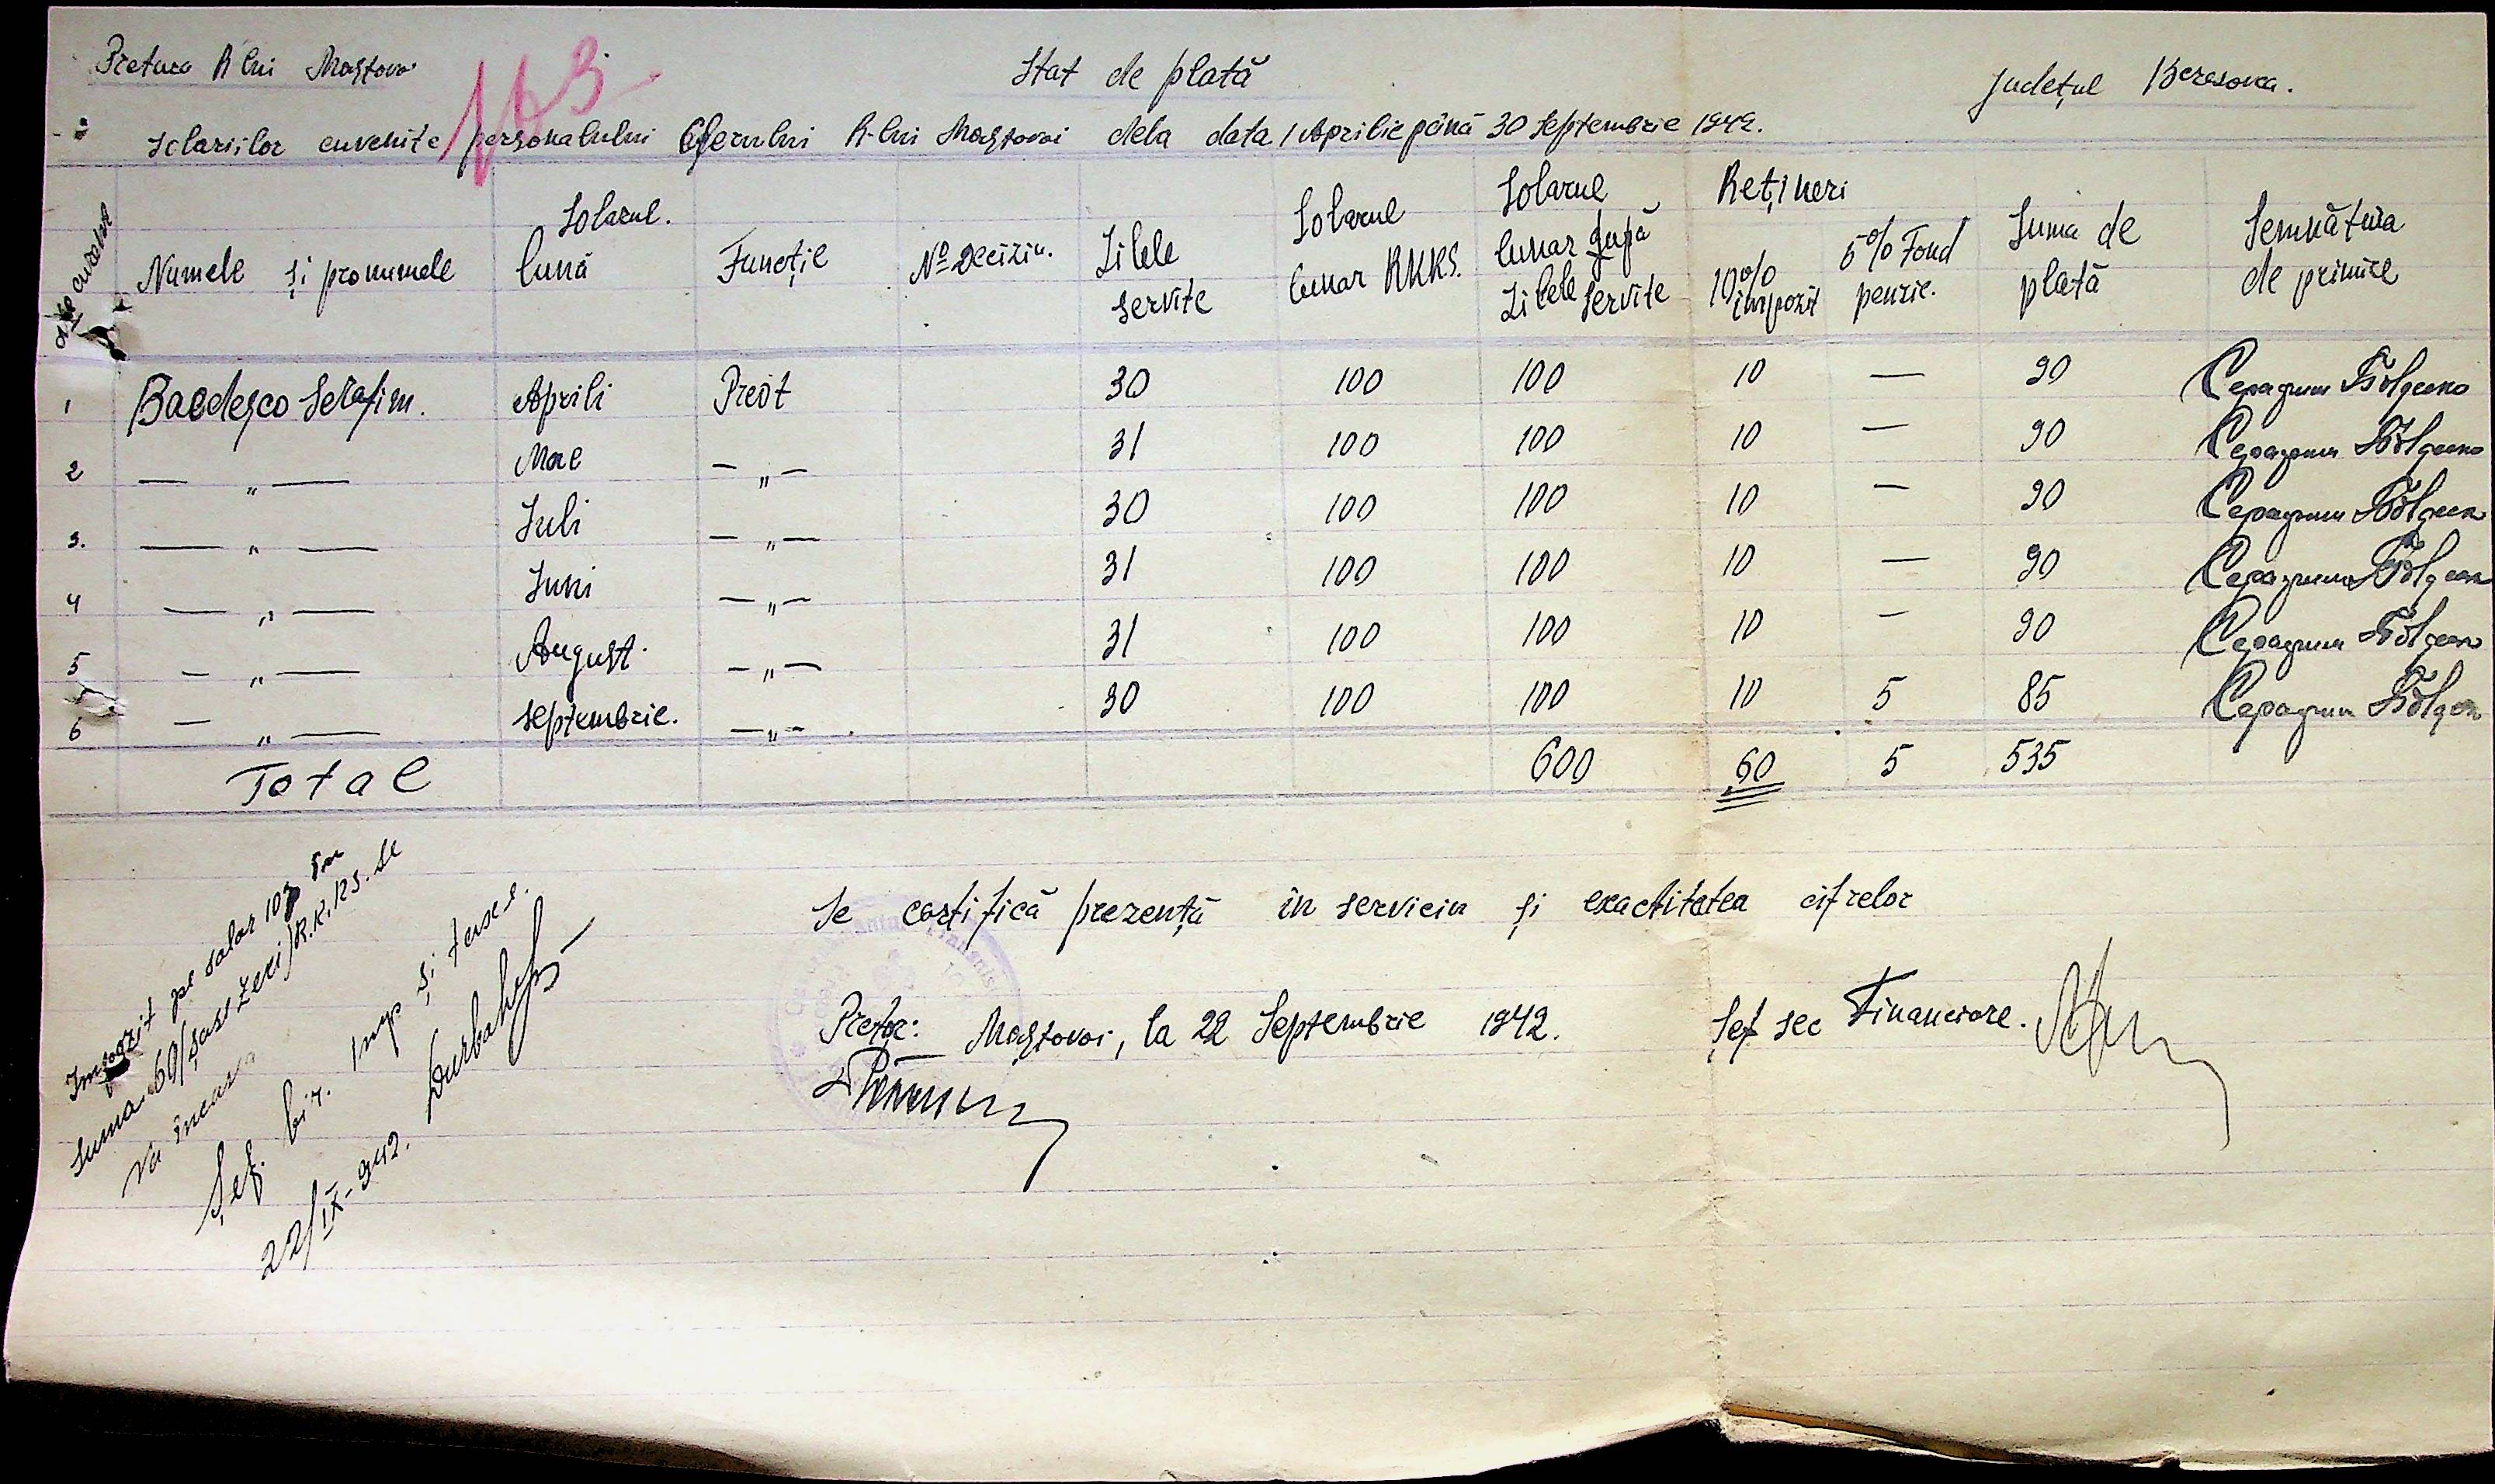 Pretura R lui Mostovoi
163
Stat de plată
Județul Beresovca.
Salariilor cuvenite personalului Clerului R-lui Mostovoi dela data 1 Aprilie până 30 Septembrie 1942.
Numele și pronumele
Salarul. lună
Funcție
No Deciziu.
Zilele servite
Salarul lunar RKKS.
Salarul lunar după Zilele servite
Rețineri
10% impozit
5% Fond penzie.
Suma de plată
Semnătura de primire
1 Serafim. Aprili Preot 30 100 100 10 — 90 Серафим
2 — „ — Mae — „ — 31 100 100 10 — 90 Серафим
3. — „ — Iuli — „ — 30 100 100 10 — 90 Серафим
4 — „ — Iuni — „ — 31 100 100 10 — 90 Серафим
5 — „ — August. — „ — 31 100 100 10 — 90 Серафим
6 — „ — Septembrie. — „ — 30 100 100 10 5 85 Серафим
Total 600 60 5 535
Impozit pe salar 10% în
Suma 60/șase zeci/R.K.KS. se
va încasa
Șef. bir. Imp și taxe.
22/IX-942.
Se certifică prezență în serviciu și exactitatea cifrelor
Pretor: Mostovoi, la 22 Septembrie 1942. Șef sec Financiare.